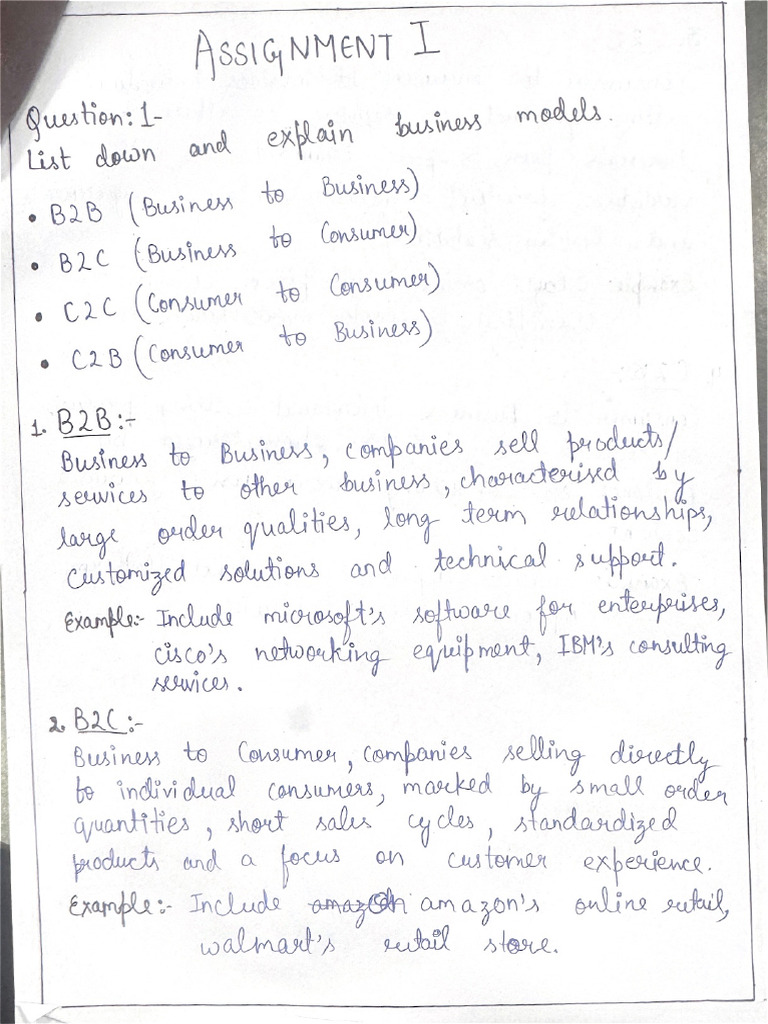 ASSIGNMENT I
Question: 1-
List down and explain business models.
• B2B (Business to Business)
• B2C (Business to Consumer)
• C2C (Consumer to Consumer)
• C2B (Consumer to Business)
1. B2B:-
Business to Business, companies sell products/
services to other business, characterised by
large order qualities, long term relationships,
customized solutions and technical support.
Example:- Include microsoft's software for enterprises,
cisco's networking equipment, IBM's consulting
services.
2. B2C:-
Business to Consumer, companies selling directly
to individual consumers, marked by small order
quantities, short sales cycles, standardized
products and a focus on customer experience.
Example:- Include amazon's online retail,
walmart's retail store.